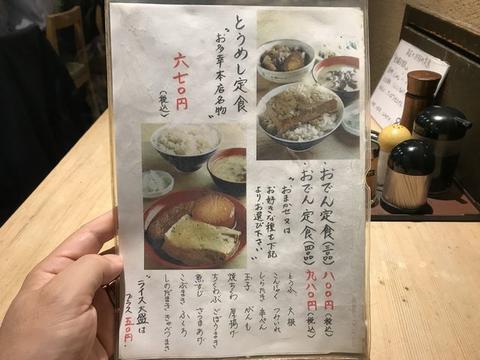 とうめし定食
"お多幸本店名物"
六七〇円
(税込)
・おでん定食(三品) 八〇〇円(税込)
・おでん定食(四品) 九八〇円(税込)
"おまかせ又は
お好きな種を下記
よりお選び下さい"
とうふ 大根
こんにゃく つみれ
しらたき
玉子 がんも
焼ちくわ 厚揚げ
ちくわぶ ごぼうまき
煮すじ さつまあげ
こぶまき ふくろ
しのだまき キャベツまき
"ライス大盛は
プラス五〇円"